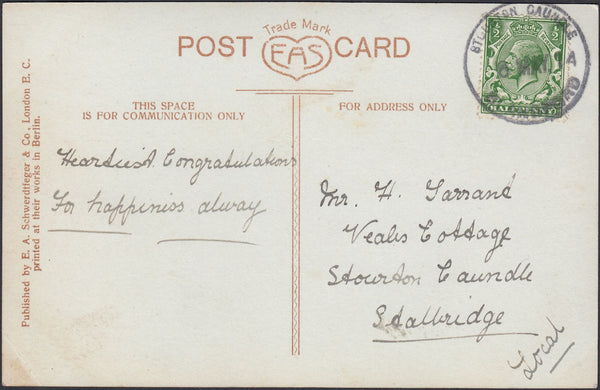 Trade Mark
POST CARD
EAS
THIS SPACE
IS FOR COMMUNICATION ONLY
FOR ADDRESS ONLY
Heartiest Congratulations
For happiness alway
Mr. H.
Veals Cottage
Stourton Caundle
Stalbridge
Local
Published by E. A. Schwerdtfeger & Co. London E. C.
printed at their works in Berlin.
STOURTON CAUNDLE
HALFPENNY